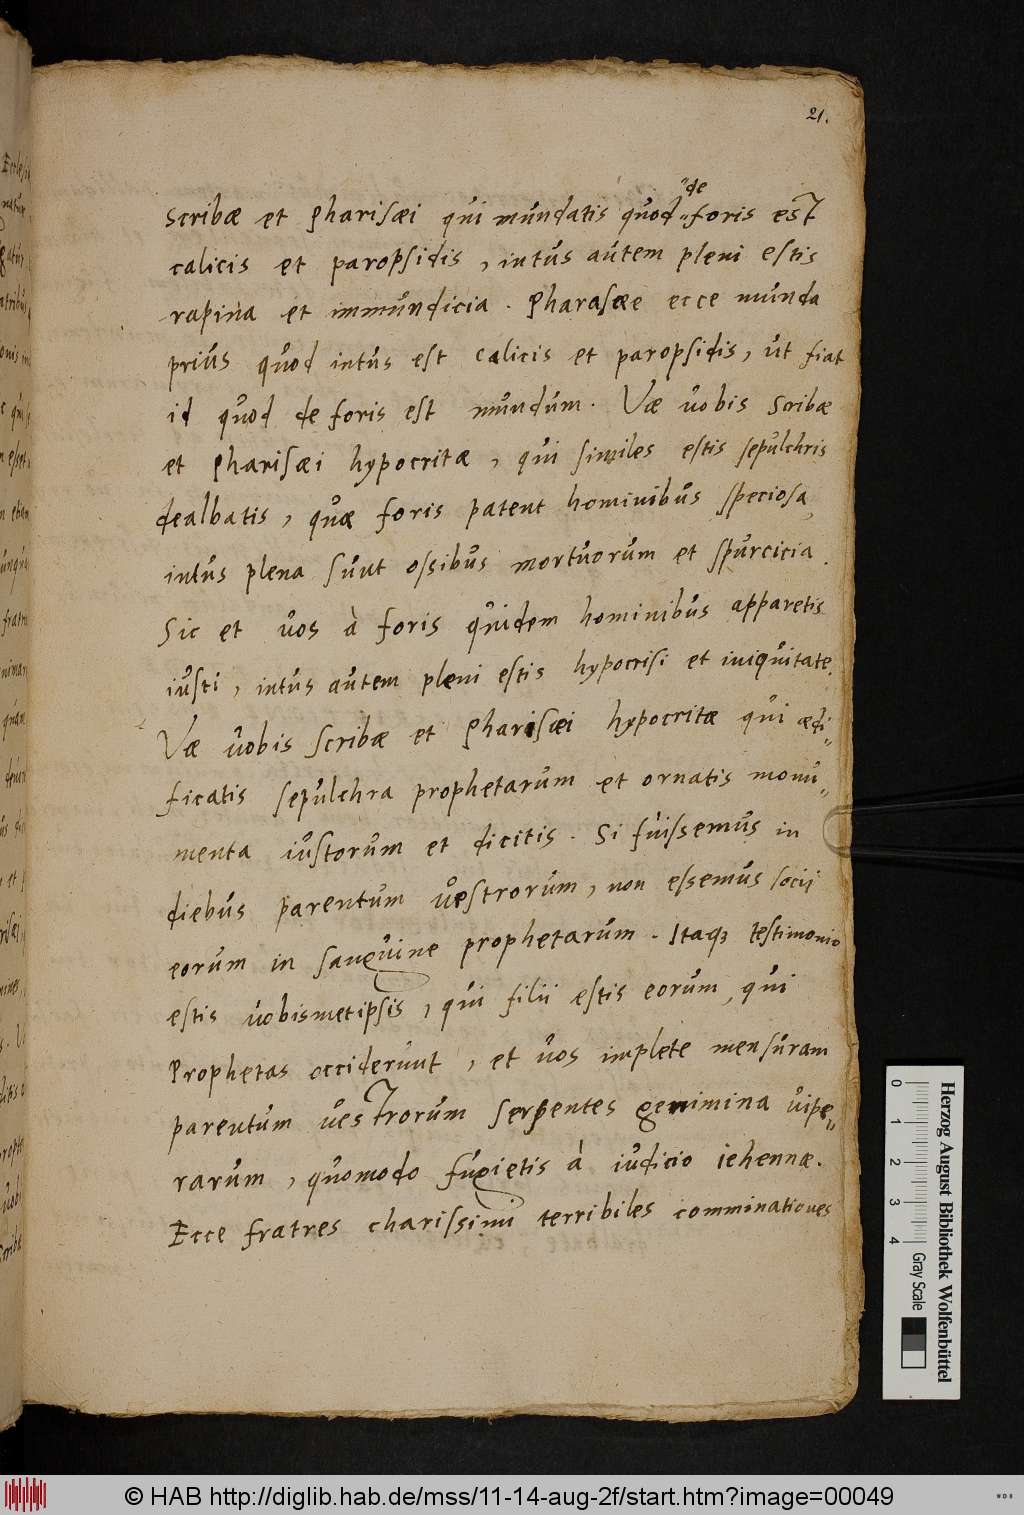 21.
de
scribæ et Pharisæi qui mundatis quod foris est
calicis et paropsidis, intus autem pleni estis
rapina et immundicia. Pharasæe ecce munda
prius quod intus est calicis et paropsidis, ut fiat
id quod de foris est mundum. Væ vobis scribæ
et Pharisæi hypocritæ, qui similes estis sepulchris
dealbatis, quæ foris patent hominibus speciosa,
intus plena sunt ossibus mortuorum et spurcicia.
Sic et vos à foris quidem hominibus apparetis
iusti, intus autem pleni estis hypocrisi et iniquitate.
Væ vobis scribæ et Pharisæi hypocritæ qui ædi„
ficatis sepulchra prophetarum et ornatis monu„
menta iustorum et dicitis. Si fuissemus in
diebus parentum vestrorum, non essemus socij
eorum in sanguine prophetarum. Itaqꝫ testimonio
estis vobismetipsis, qui filii estis eorum, qui
Prophetas occiderunt, et vos implete mensuram
parentum vestrorum serpentes genimina vipe„
rarum, quomodo fugietis à iudicio iehennæ.
Ecce fratres charissimi terribiles comminationes
Herzog August Bibliothek Wolfenbüttel
0 1 2 3 4
Gray Scale
© HAB http://diglib.hab.de/mss/11-14-aug-2f/start.htm?image=00049